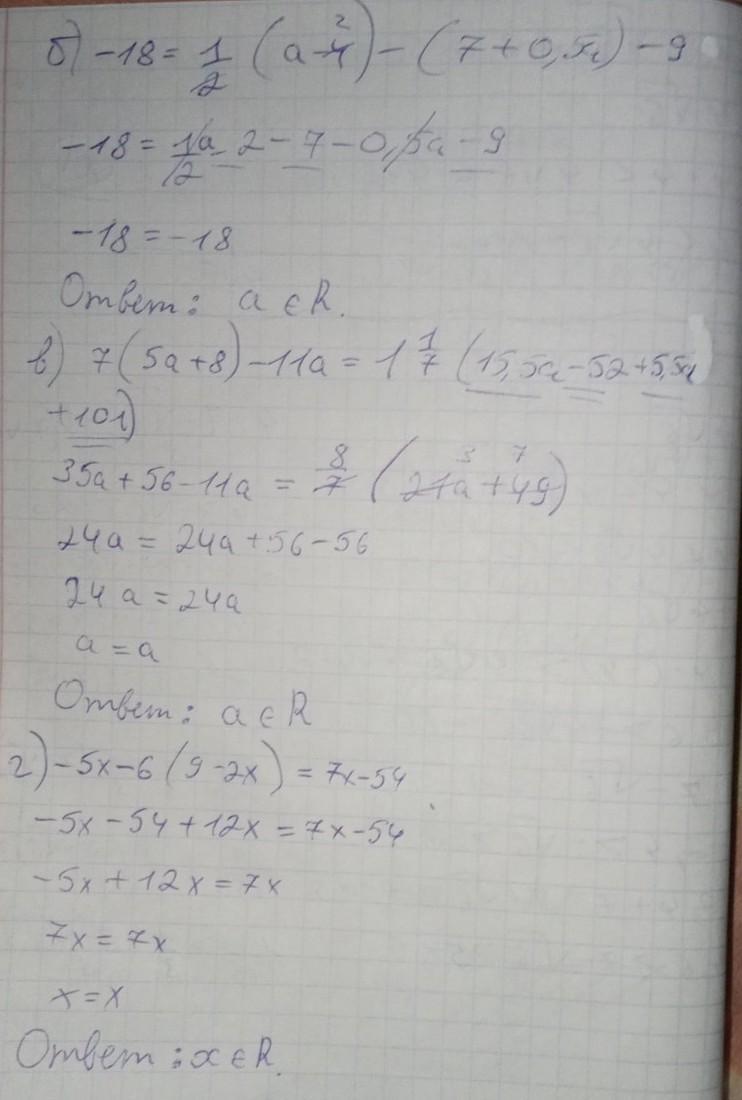 б) -18 = 1/2 (a-4) - (7+0,5a) - 9
2
-18 = 1/2 a - 2 - 7 - 0,5a - 9
-18 = -18
Ответ: a ∈ R.
в) 7(5a+8) - 11a = 1 1/7 (15,5a - 52 + 5,5a
+101)
35a + 56 - 11a = 8/7 (21a + 49)
3 7
24a = 24a + 56 - 56
24a = 24a
a = a
Ответ: a ∈ R
г) -5x - 6(9-2x) = 7x - 54
-5x - 54 + 12x = 7x - 54
-5x + 12x = 7x
7x = 7x
x = x
Ответ: x ∈ R.